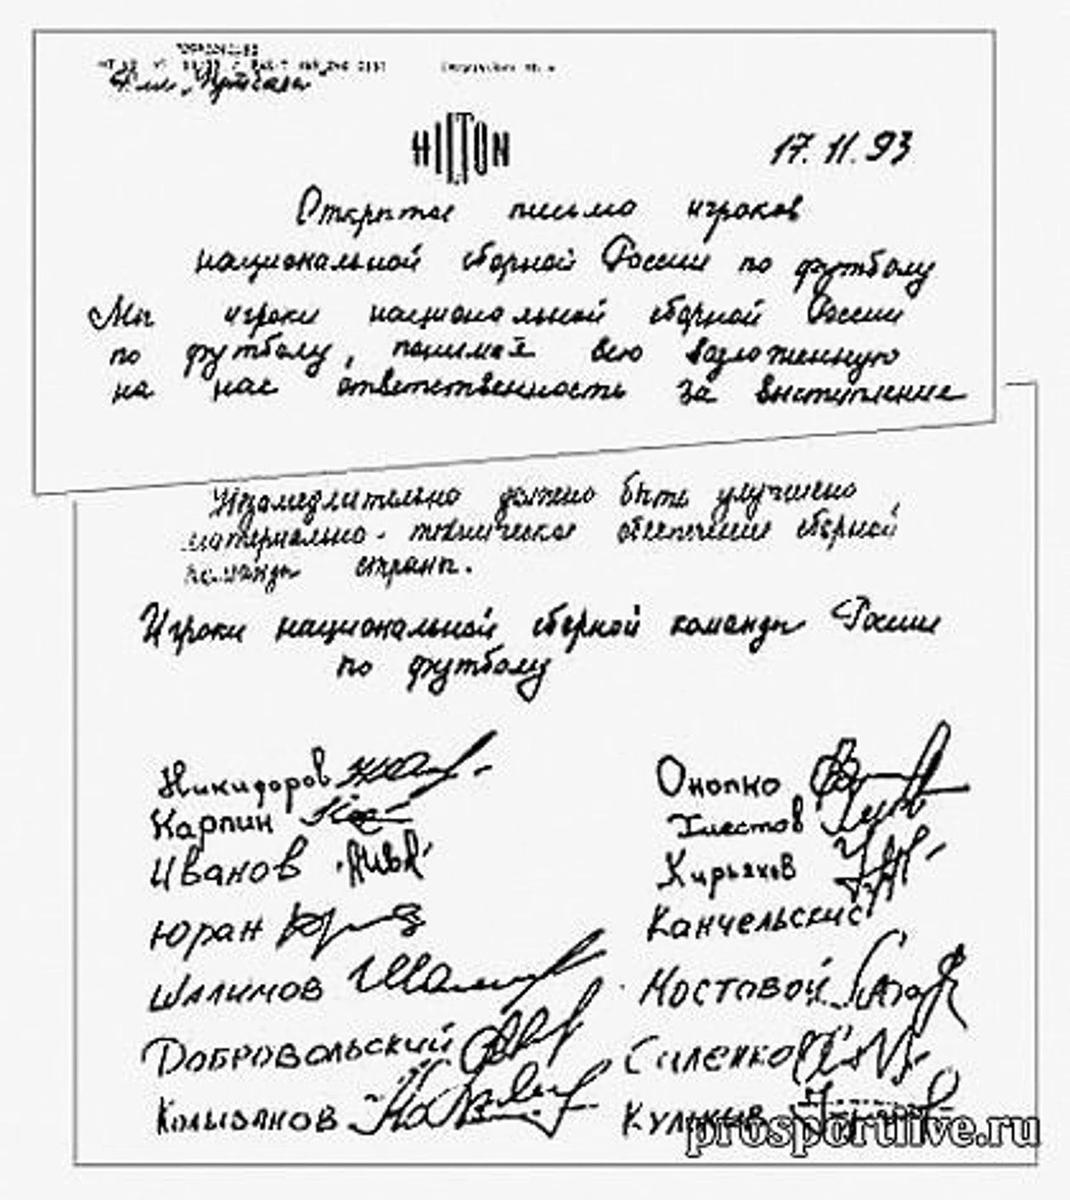 HILTON
17.11.93
Открытое письмо игроков
национальной сборной России по футболу
Мы игроки национальной сборной России
по футболу, понимая всю возложенную
на нас ответственность за выступление
Незамедлительно должно быть улучшено
материально-техническое обеспечение сборной
команды страны.
Игроки национальной сборной команды России
по футболу
Никифоров
Онопко
Карпин
Хлестов
Иванов
Кирьяков
Юран
Канчельскис
Шалимов
Мостовой
Добровольский
Колыванов
Кульков
prosportlive.ru